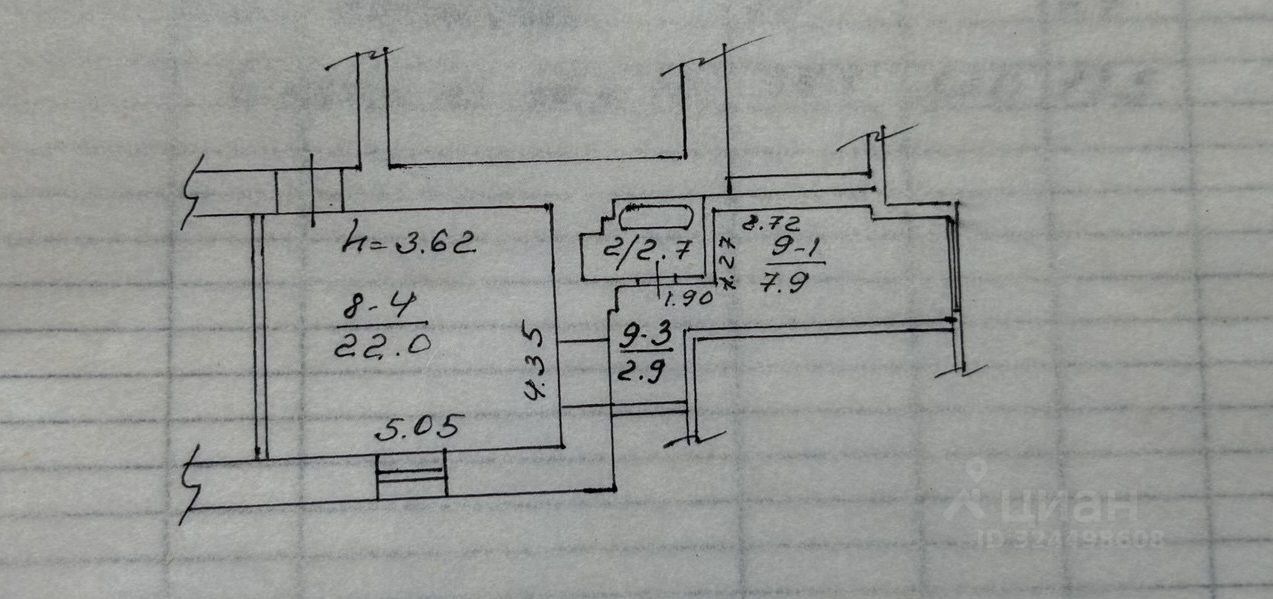 h=3.62
8-4
22.0
4.35
5.05
2/2.7
1.90
9-3
2.9
2.27
8.72
9-1
7.9
циан
ID 324498608